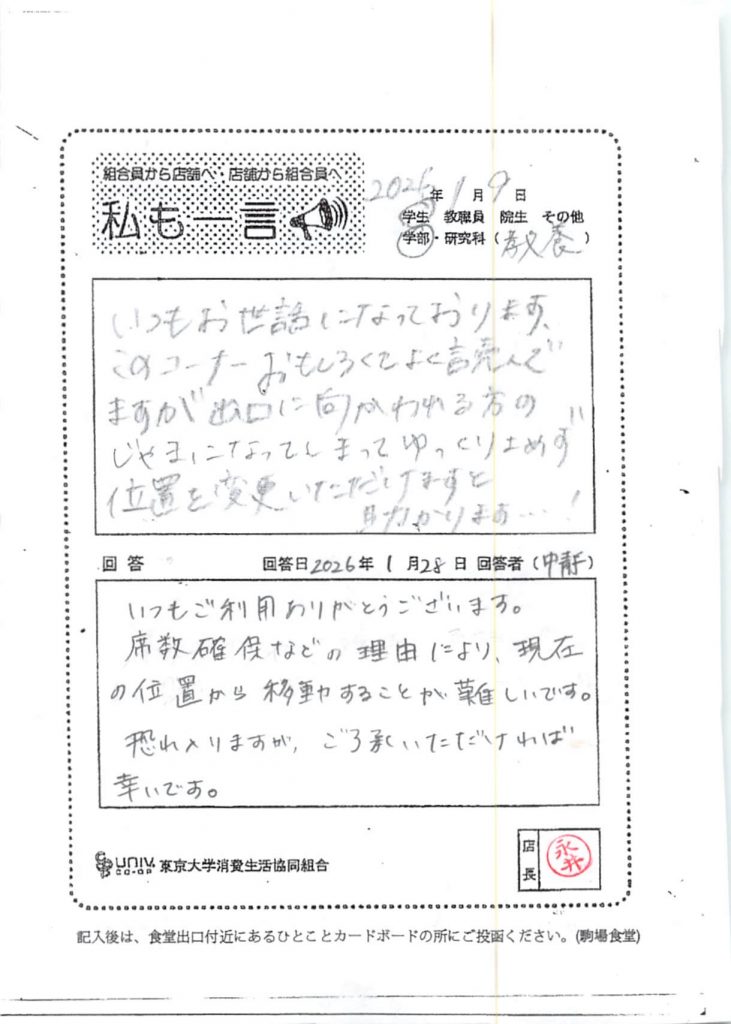 組合員から店舗へ・店舗から組合員へ
私も一言
2026年1月9日
学生 教職員 院生 その他
学部・研究科(教養)
いつもお世話になっております、
このコーナーおもしろくてよく読んで
ますが出口に向かわれる方の
じゃまになってしまってゆっくり止めず
位置を変更いただけますと
助かります…!
回答 回答日2026年1月28日 回答者(中静)
いつもご利用ありがとうございます。
席数確保などの理由により、現在
の位置から移動することが難しいです。
恐れ入りますが、ご了承いただければ
幸いです。
UNIV. CO-OP 東京大学消費生活協同組合
店長 永井
記入後は、食堂出口付近にあるひとことカードボードの所にご投函ください。(駒場食堂)